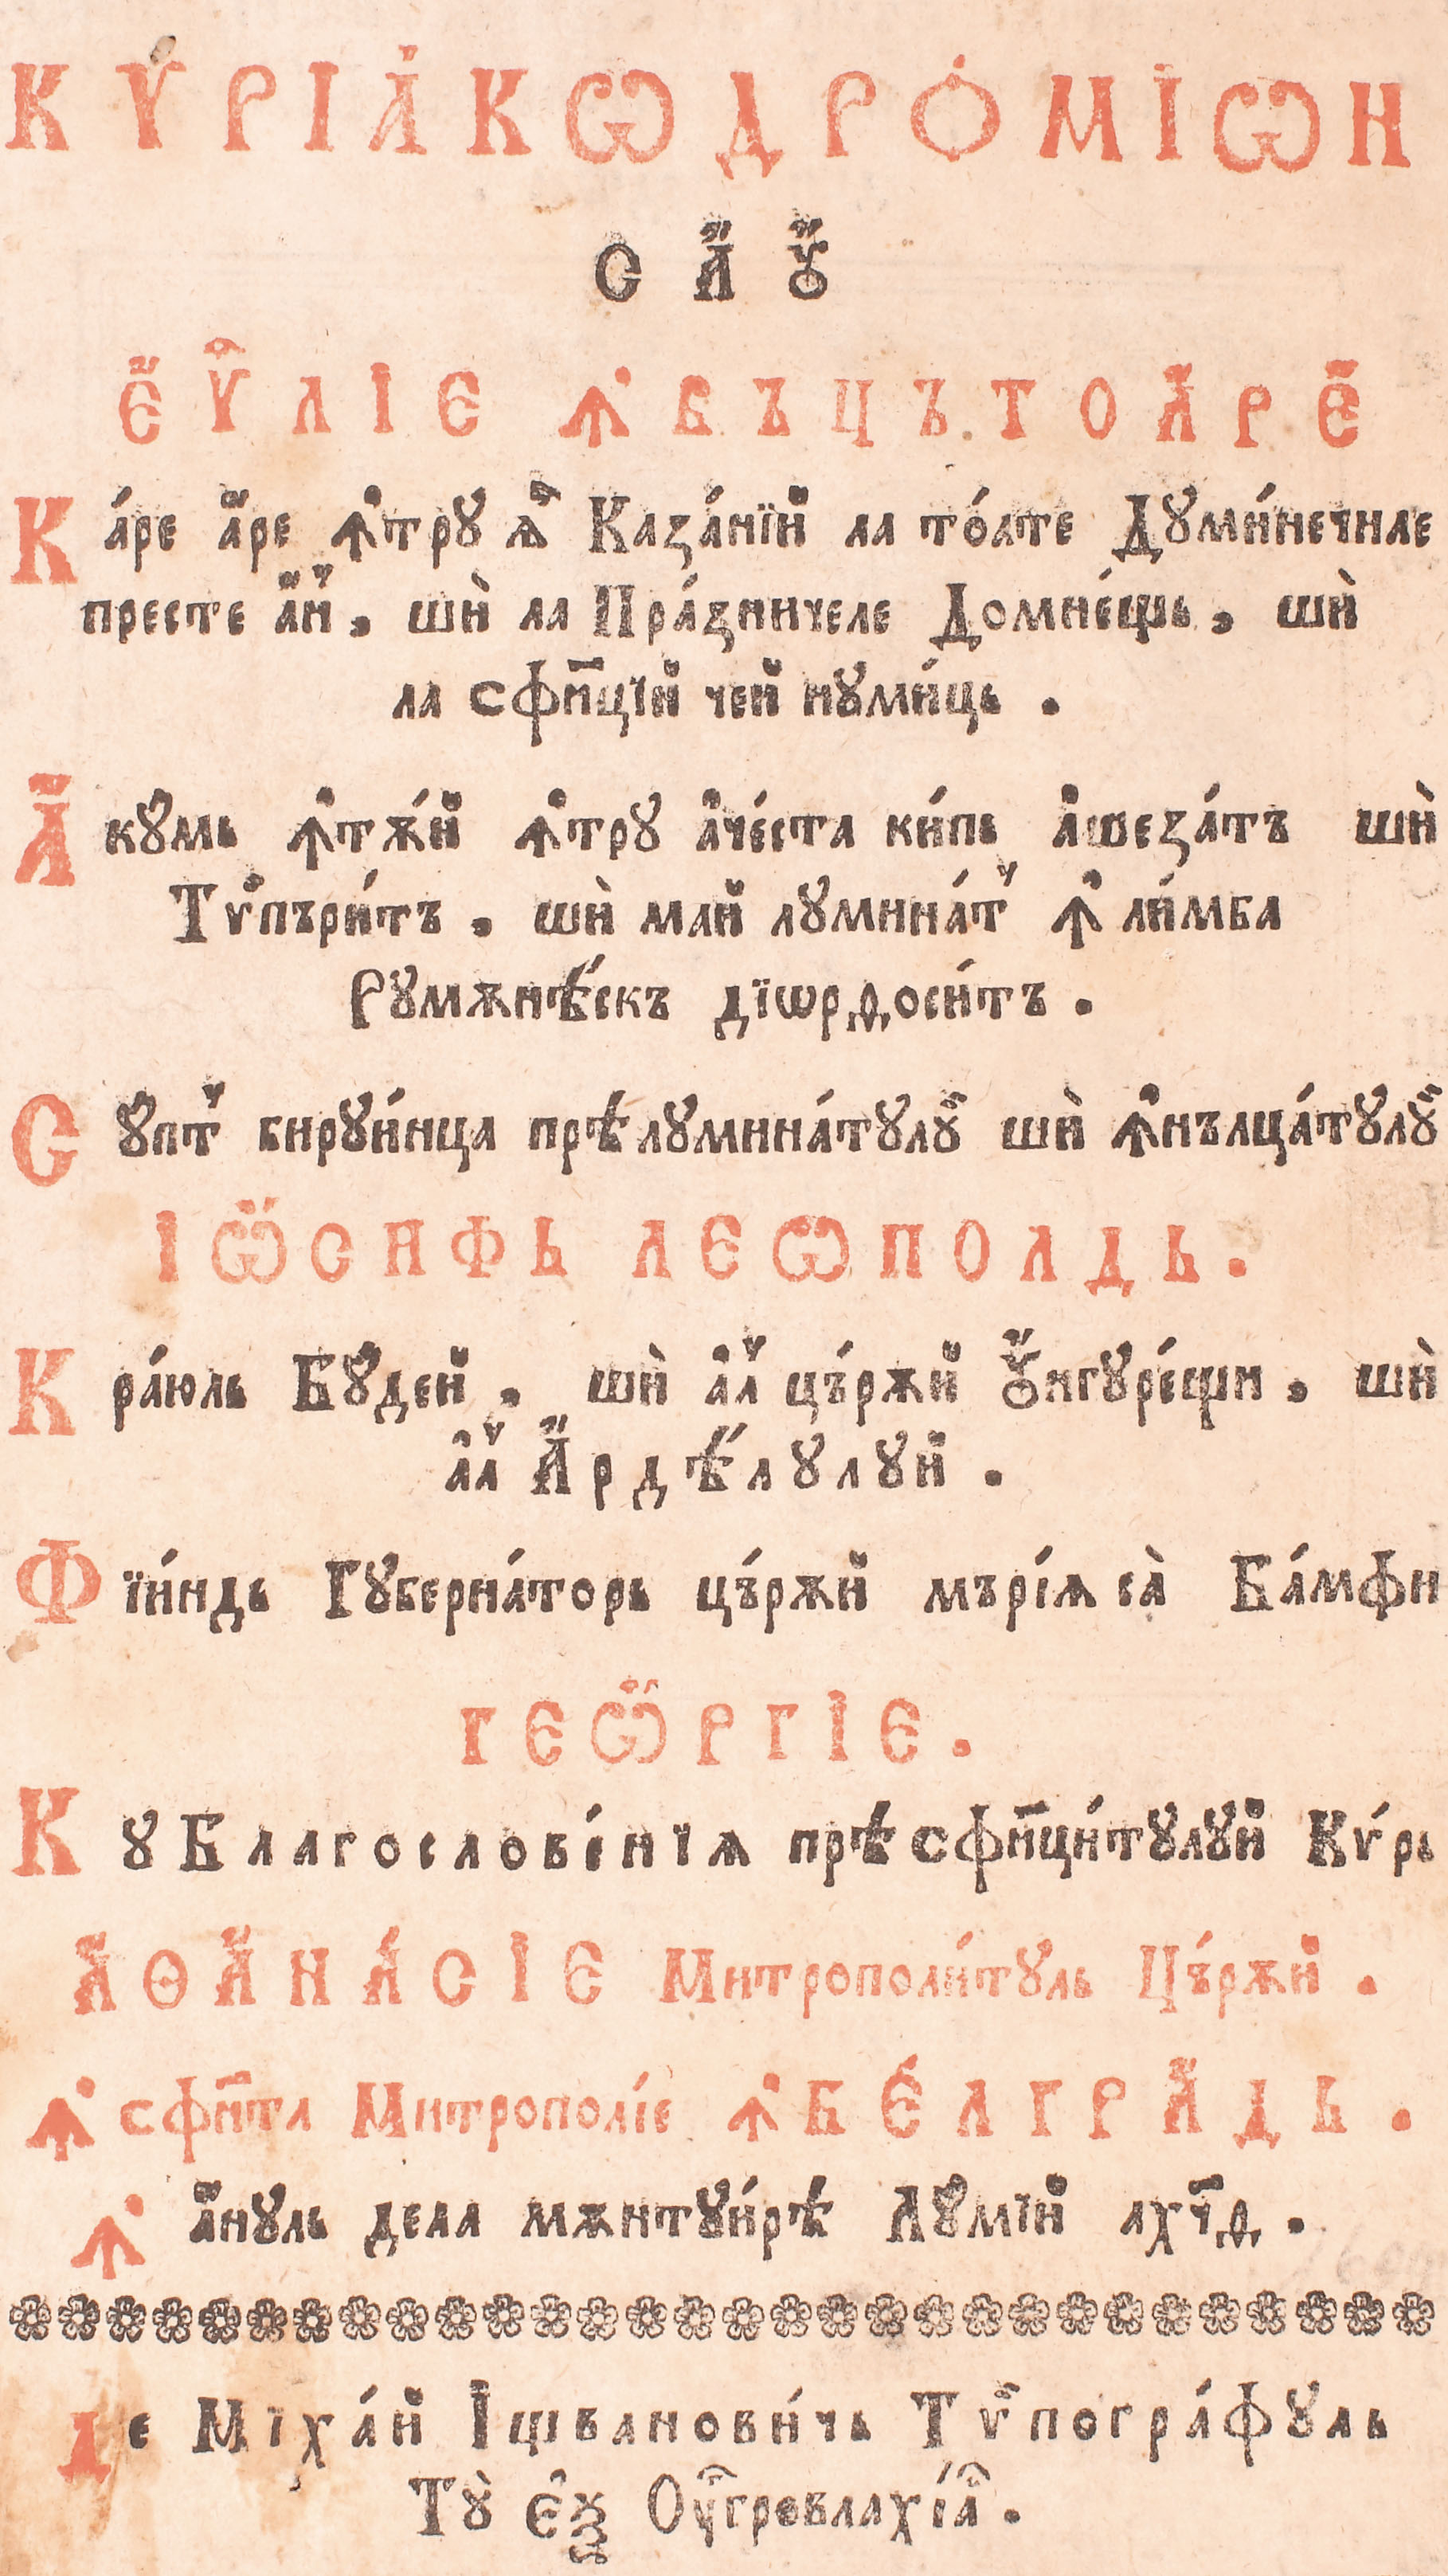 КѴРІА́КѠДРО́МІѠН
САꙊ
Є҆Ѵ҃ЛІЕ ꙟ҆ВЪЦЪТОА҆РЕ
Ка́ре а҆́ре ꙟ҆трꙋ ѧ҆̀ Каза́нїй ла то́ате Дꙋми́нечиле
песте а҆́н꙽, шѝ ла Пра́зничеле Домне́щь, шѝ
ла сфн҃цїй чей нꙋми́ць.
А҆кꙋ́мь ꙟ҆тѫ́й ꙟ҆трꙋ а҆че́ста ки́пь а҆шеза́тъ шѝ
Тѵ҆пъри́тъ, шѝ май лꙋмина́т꙽ ꙟ҆ ли́мба
Рꙋмѫнѣ́скъ дїѡрдоси́тъ.
Сꙋ́пт꙽ бирꙋи́нца прѣлꙋмина́тꙋлꙋй шѝ ꙟ҆нълца́тꙋлꙋй
ІѠ҆СИФЬ ЛЕѠПОЛДЬ.
Кра́юль Бꙋ́дей, шѝ а҆л꙽ цъ́рѫй Ꙋ҆нгꙋре́щи, шѝ
а҆л꙽ А҆рдѣ́лꙋлꙋй.
Фїи́ндь Гꙋберна́торь цъ́рѫй мърі́ѧ са̀ Ба́мфи
ГЕѠ҆РГІЕ.
Кꙋ Благослове́нїѧ прѣ́сфн҃ци́тꙋлꙋй Кѵ́рь
А҆ѲА҆НА́СІЕ Митрополи́тꙋль Цъ́рѫй.
ꙟ҆ сфн҃та Митрополі́е ꙟ҆ БЕ́ЛГРА҆ДЬ.
ꙟ҆ а҆́нꙋль дела мѫнтꙋи́рѣ Лꙋ́мїй ахч҃д.
Де Міха́й І҆щвановичь Тѵ҆погра́фꙋль
Тꙋ̀ є҆ѯ Оу҆ггровлахі́а҆.